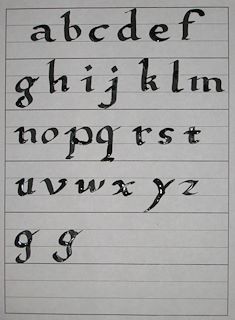 a b c d e f
g h i j k l m
n o p q r s t
u v w x y z
g g